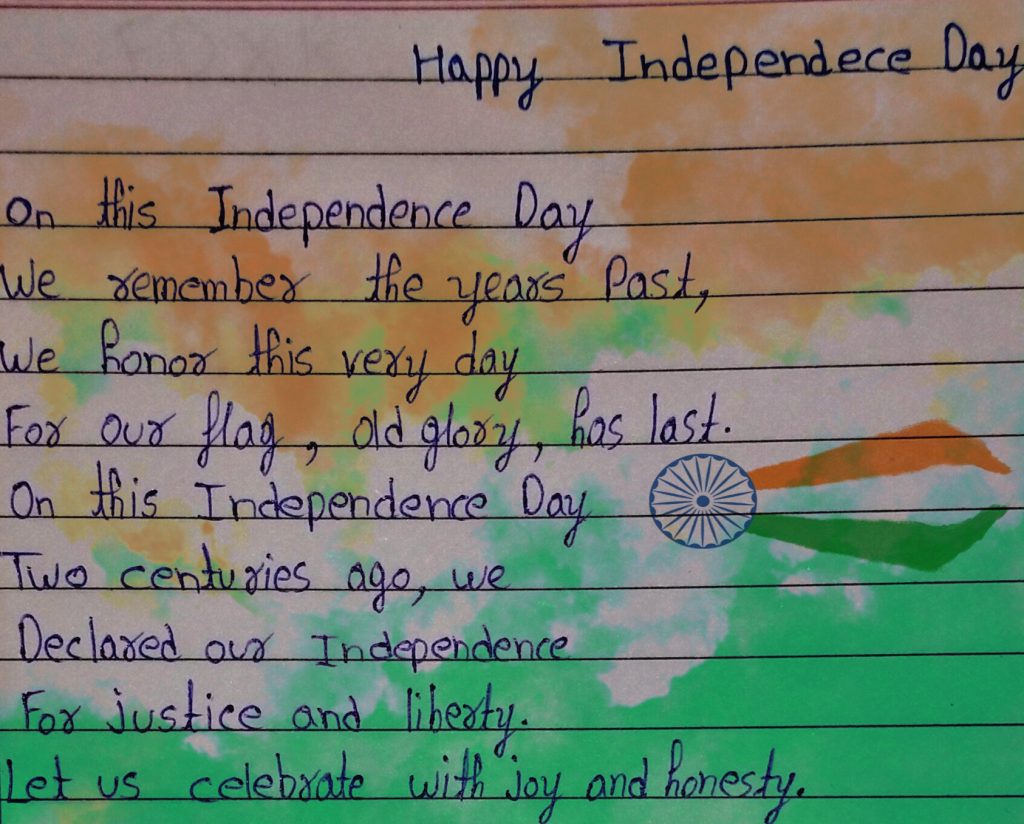 Happy Independece Day
On this Independence Day
We remember the years Past,
We honor this very day
For our flag, old glory, has last.
On this Independence Day
Two centuries ago, we
Declared our Independence
For justice and liberty.
Let us celebrate with joy and honesty.